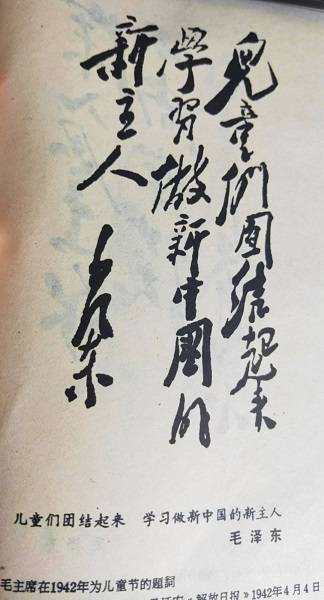 兒童们團结起来
學習做新中國的
新主人
毛泽东
儿童们团结起来　学习做新中国的新主人
毛泽东
毛主席在1942年为儿童节的题詞
《解放日报》1942年4月4日